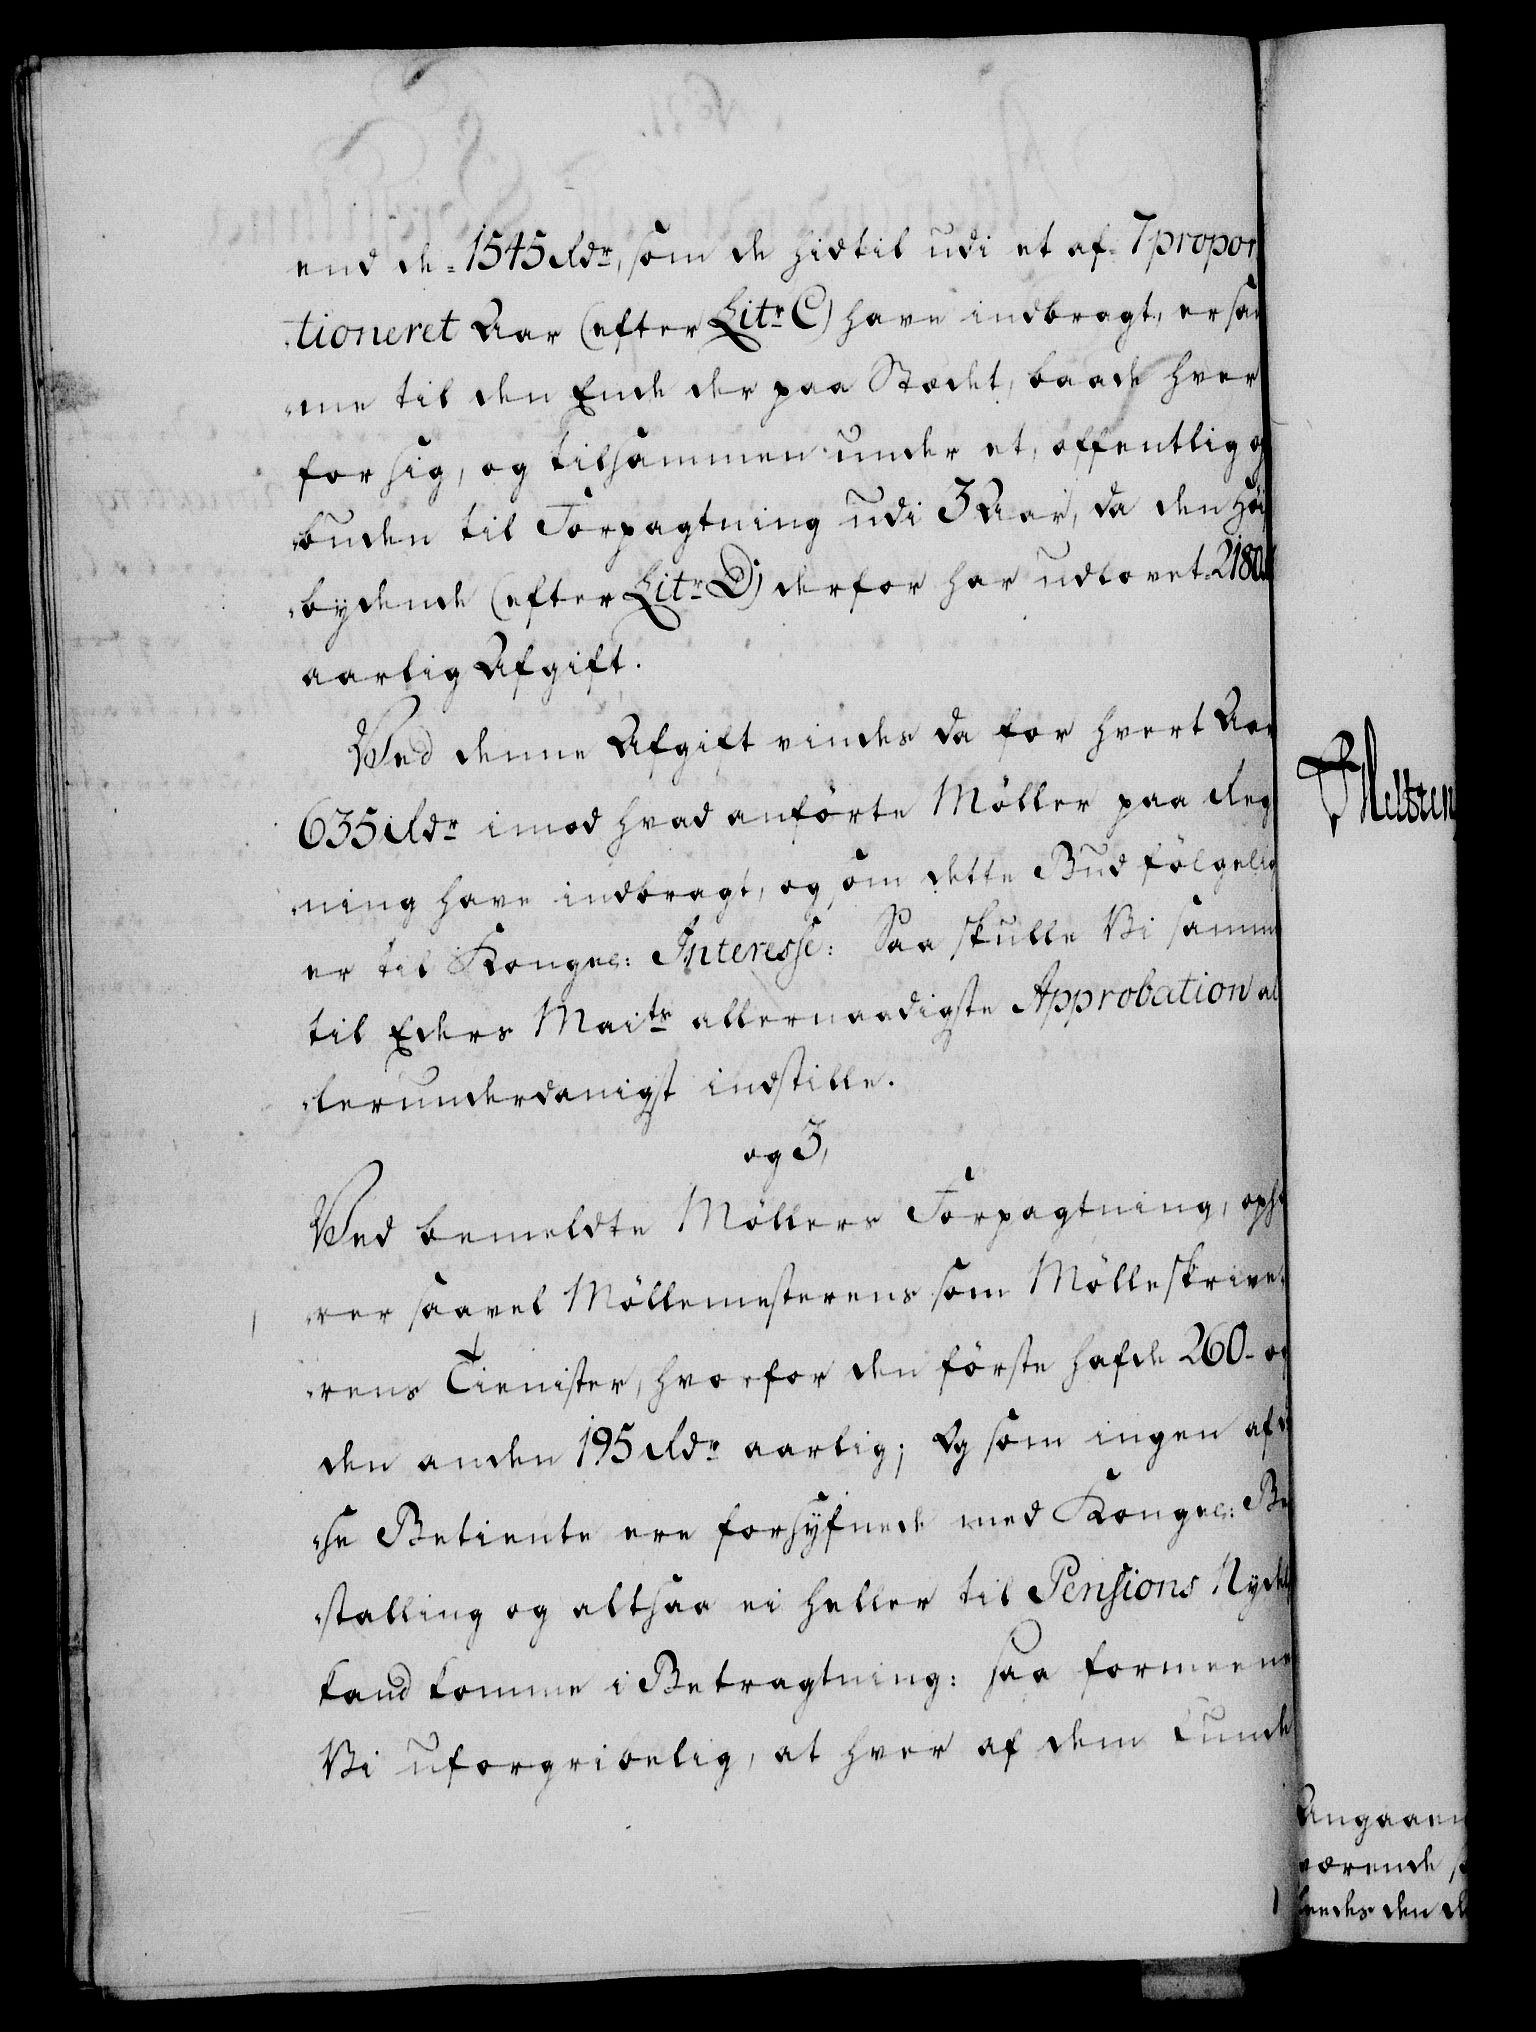 end de 1545 Rdr, som de hidtil udi et af 7 propor
tioneret Aar (efter Litr C) have indbragt, er sam
me til den Ende der paa Stædet, baade hver
for sig, og tilsammen under et, offentlig op
buden til Forpagtning udi 3 Aar, da den Høi
bydende (efter Litr D) derfor har udlovet 2180
aarlig Afgift.
Ved denne Afgift vindes da for hvert Aar
635 Rdr imod hvad anførte Møller paa Reg
ning have indbragt, og som dette Bud følgelig
er til Kongel: Interesse: Saa skulle Vi samme
til Eders Maits allernaadigste Approbation al
lerunderdanigst indstille.
og 3,
Ved bemeldte Møllers Forpagtning, ophø
rer saavel Møllemesterens som Mølleskrive
rens Tienister, hvorfor den første hafde 260 og
den anden 195 Rdr aarlig; Og som ingen af di
se Betiente ere forsyfnede med Kongel: Be
stalling og altsaa ei heller til Pensions Nydel
kand komme i Betragtning: saa formeene
Vi uforgribelig, at hver af dem kunde
Angaaen
værende
den d